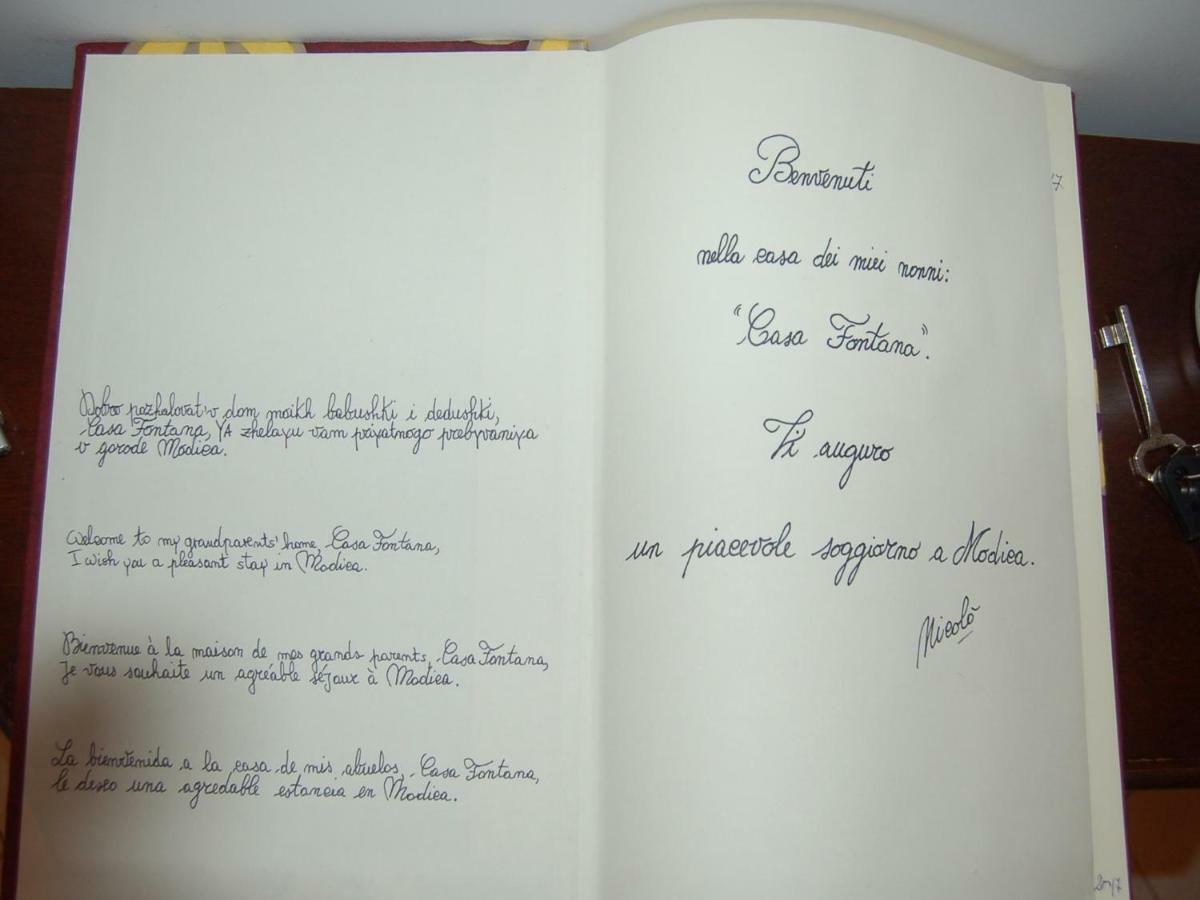 Dobro pozhalovat'v dom moikh babushki i dedushki,
Casa Fontana, YA zhelayu vam priyatnogo prebyvaniya
v gorode Modica.
Welcome to my grandparents' home, Casa Fontana,
I wish you a pleasant stay in Modica.
Bienvenue à la maison de mes grands parents, Casa Fontana,
Je vous souhaite un agréable séjour à Modica.
La bienvenida a la casa de mis abuelos, Casa Fontana,
le deseo una agredable estancia en Modica.
Benvenuti
nella casa dei miei nonni:
"Casa Fontana".
Vi auguro
un piacevole soggiorno a Modica.
Nicolò